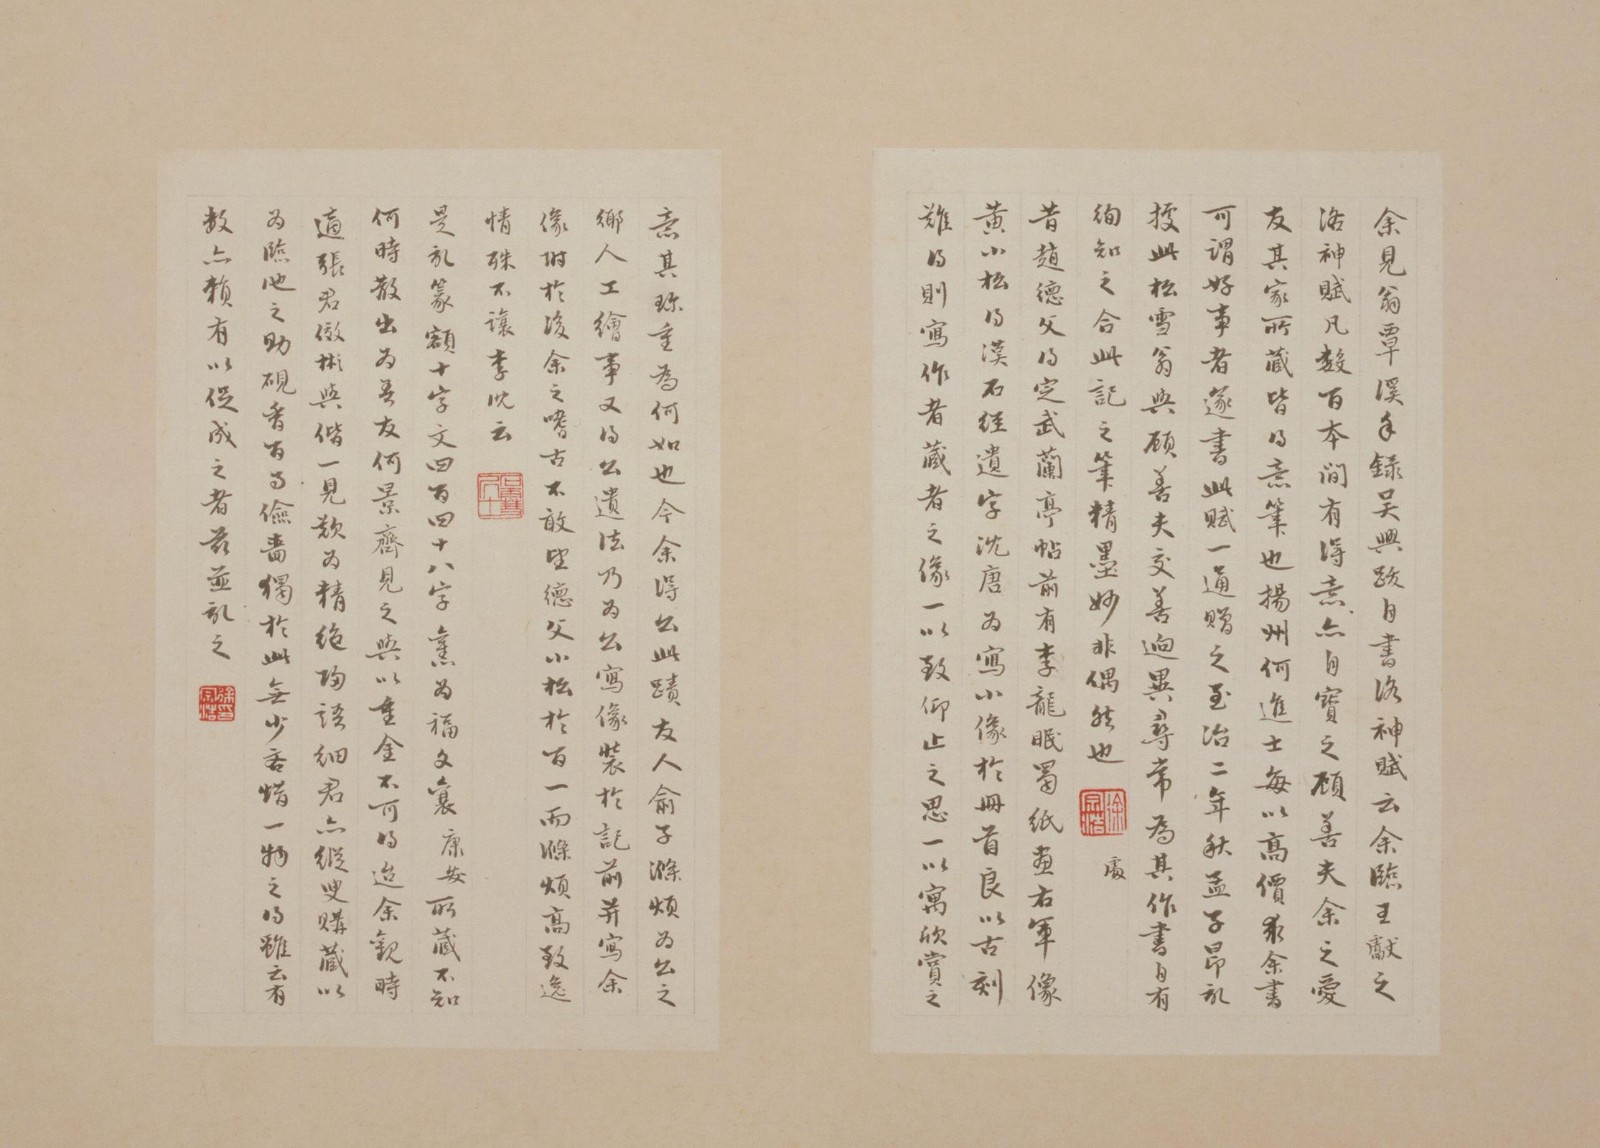 余見翁覃溪手錄吳興跋自書洛神賦云余臨王獻之
洛神賦凡數百本間有得意亦自寶之顧善夫余之愛
友其家所藏皆得意筆也揚州何進士每以高價求余書
可謂好事者遂書此賦一通贈之至治二年秋孟子昂記
據此松雪翁與顧善夫交善迥異尋常為其作書自有
絢知之合此記之筆精墨妙非偶然也
徐宗浩
昔趙德父得定武蘭亭帖前有李龍眠蜀紙畫右軍像
黃小松得漢石經遺字沈唐為寫小像於冊首良以古刻
難得則寫作者藏者之像一以致仰止之思一以寓欣賞之
意其珍重為何如也今余得公此蹟友人俞子滌煩為公之
鄉人工繪事又得公遺法乃為公寫像裝於記前并寫余
像附於後余之嗜古不敢望德父小松於百一而滌煩高致逸
情殊不讓李沈云
是記篆額十字文四百四十八字舊為福文襄康安所藏不知
何時散出為吾友何景齊見之與以重金不可得迨余觀時
適張君效彬與偕一見歎為精絕歸語細君亦縱臾購藏以
為臨池之助硯香百事儉嗇獨於此無少吝惜一物之得雖云有
數亦賴有以促成之者茲並記之
徐宗浩